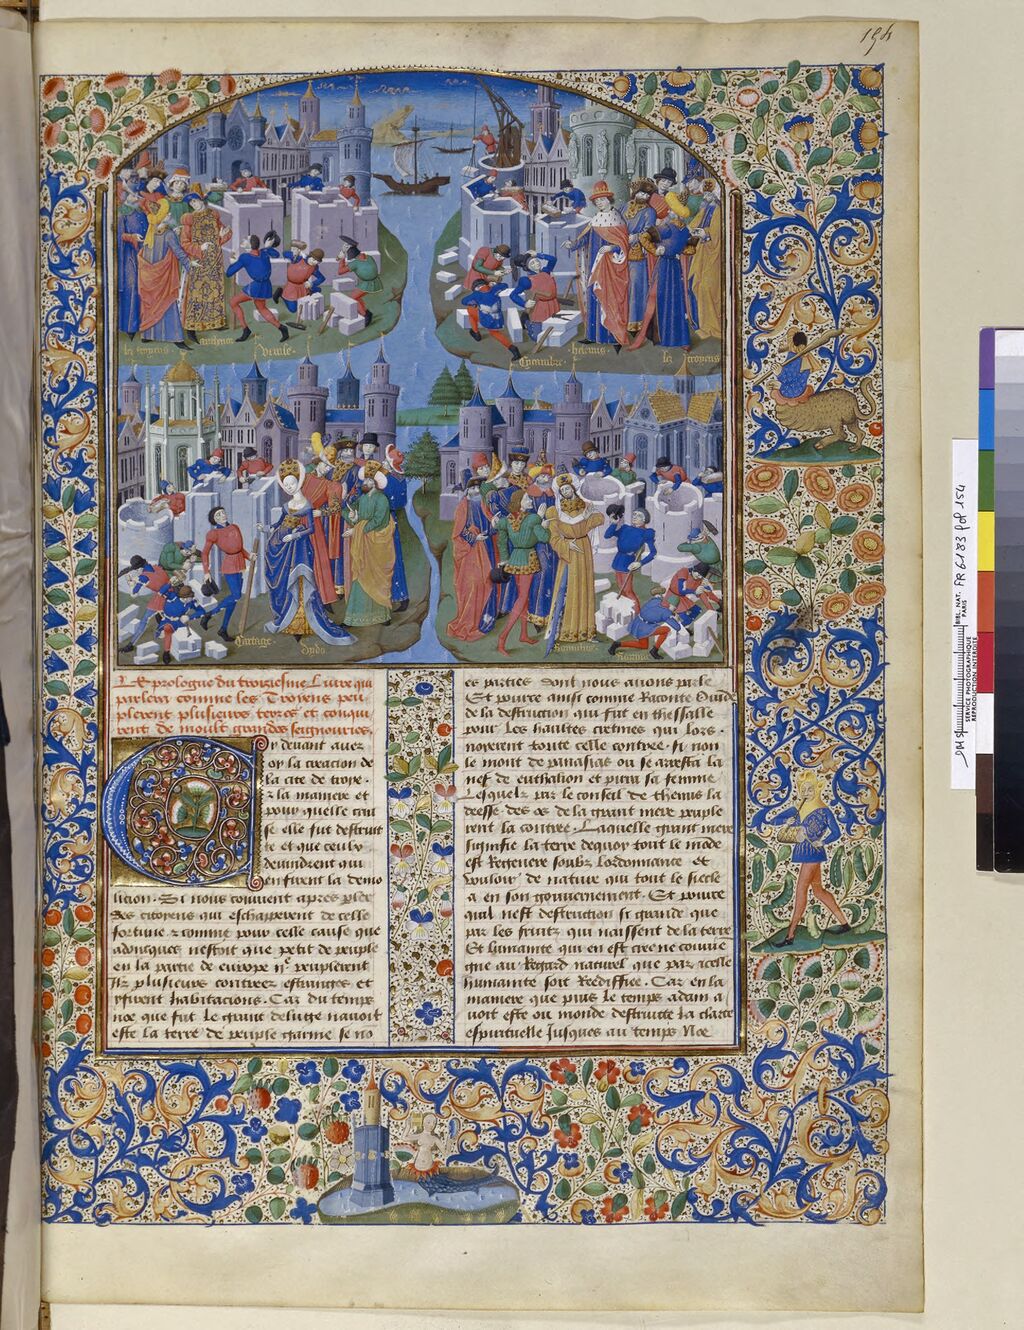 154
les troyens
anthenor
Venise
Sycambre
helenus
les troyens
Cartage
Dydo
Romulus
Romme
Le prologue du troysiesme Livre qui
parlera comme les Troyens peu
plerent plusieurs terres et conqui
rent de moult grandes seignouries
Cy devant avez
oy la creacion de
la cite de troye
z la maniere et
pour quelle cau
se elle fut destruit
te et que ceulx
devindrent qui
en firent la demo
licion. Si nous convient apres plez
des citoyens qui eschapperent de celle
fortune z comme pour celle cause que
adoncques nestoit que petit de peuple
en la partie de europe ilz peuplerent
plusieurs contrees estranges et
y firent habitacions. Car du temps
noe que fut le grant deluge navoit
este la terre de peuple garnie se no
ces parties dont nous avons parle
Et pource ainsi comme Raconte Ovide
de la destruction qui fut en thessalle
pour les haultes cretines qui lors
noyerent toute celle contree. si non
le mont de parnasus ou se arresta la
nef de euthalion et pirra sa femme
Lesquelz par le conseil de themis la
deesse des os de la grant mere peuple
rent la contree. Laquelle grant mere
signifie la terre dequoy tout le mode
est Regenere soubz lordonnance et
vouloir de nature qui tout le siecle
a en son gouvernement. Et pource
quil nest destruction si grande que
par les fruitz qui naissent de la terre
Et humanite qui en est cree ne convie
gne au Regard naturel que par icelle
humanite soit Rediffiee. Car en la
maniere que puis le temps adam a
voit este ou monde destruitte la clarte
espirituelle Jusques au temps Noe
BIBL. NAT.
PARIS
SERVICE PHOTOGRAPHIQUE
REPRODUCTION INTERDITE
FR 6183 fol 154